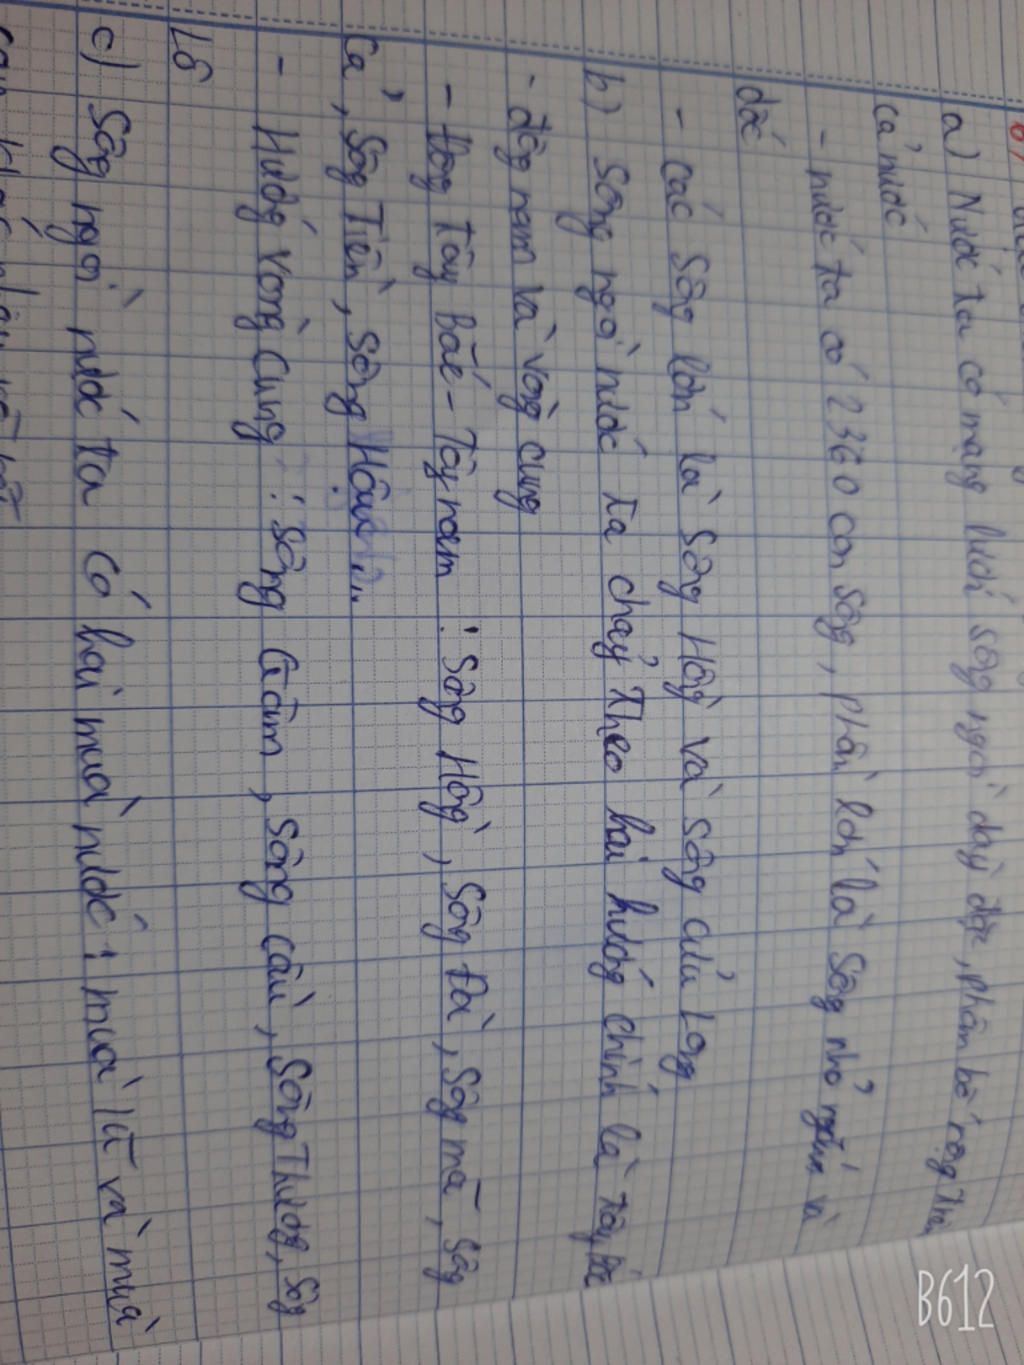 a) Nước ta có mạng lưới sông ngòi dày đặc, phân bố rộng trên
cả nước
- nước ta có 2360 con sông, phần lớn là sông nhỏ ngắn và
dốc
- các sông lớn là sông Hồng và sông cửu Long
b) sông ngòi nước ta chảy theo hai hướng chính là tây bắc
- đông nam và vòng cung
- Hướng tây bắc - Tây nam : sông Hồng, sông Đà, sông mã, sông
Cả, sông Tiền, sông Hậu...
- Hướng vòng cung : sông Gâm, sông cầu, sông Thương, sông
Lô
c) sông ngòi nước ta có hai mùa nước : mùa lũ và mùa
B612